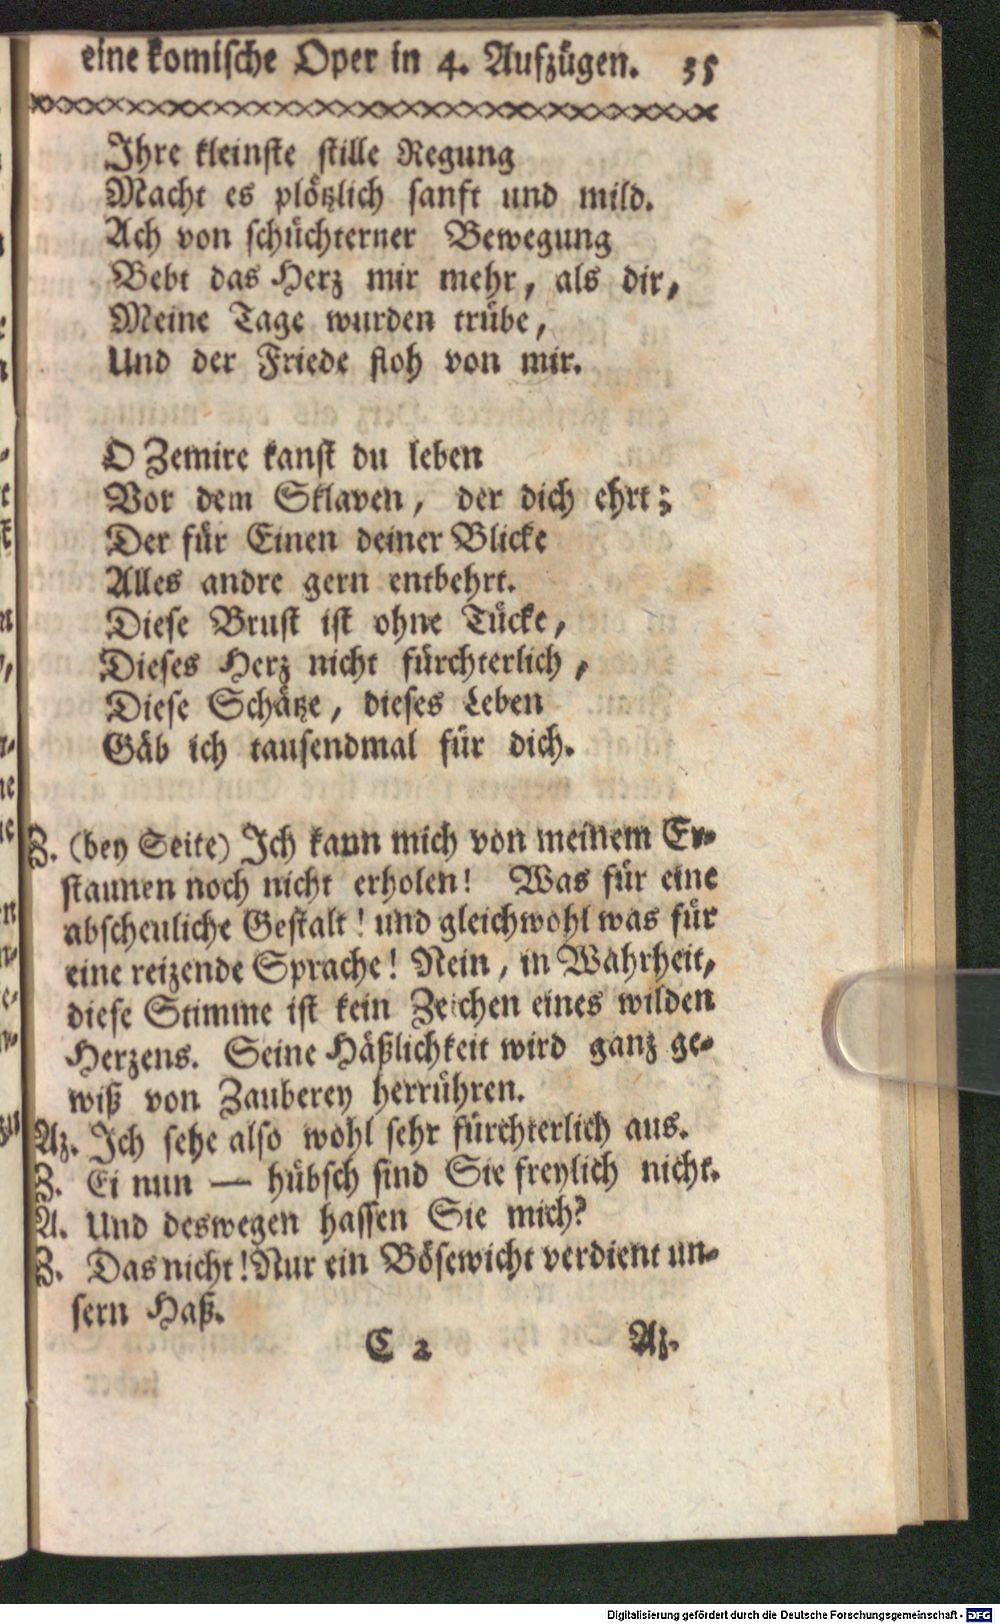 eine komische Oper in 4. Aufzügen. 35
Ihre kleinste stille Regung
Macht es plötzlich sanft und mild.
Ach von schüchterner Bewegung
Bebt das Herz mir mehr, als dir,
Meine Tage wurden trübe,
Und der Friede floh von mir.
O Zemire kanst du leben
Vor dem Sklaven, der dich ehrt;
Der für Einen deiner Blicke
Alles andre gern entbehrt.
Diese Brust ist ohne Tücke,
Dieses Herz nicht fürchterlich,
Diese Schätze, dieses Leben
Gäb ich tausendmal für dich.
Z. (bey Seite) Ich kann mich von meinem Er-
staunen noch nicht erholen! Was für eine
abscheuliche Gestalt! und gleichwohl was für
eine reizende Sprache! Nein, in Wahrheit,
diese Stimme ist kein Zeichen eines wilden
Herzens. Seine Häßlichkeit wird ganz ge-
wiß von Zauberey herrühren.
Az. Ich sehe also wohl sehr fürchterlich aus.
Z. Ei nun — hübsch sind Sie freylich nicht.
A. Und deswegen hassen Sie mich?
Z. Das nicht! Nur ein Bösewicht verdient un-
sern Haß.
C 2 Az.
Digitalisierung gefördert durch die Deutsche Forschungsgemeinschaft - DFG